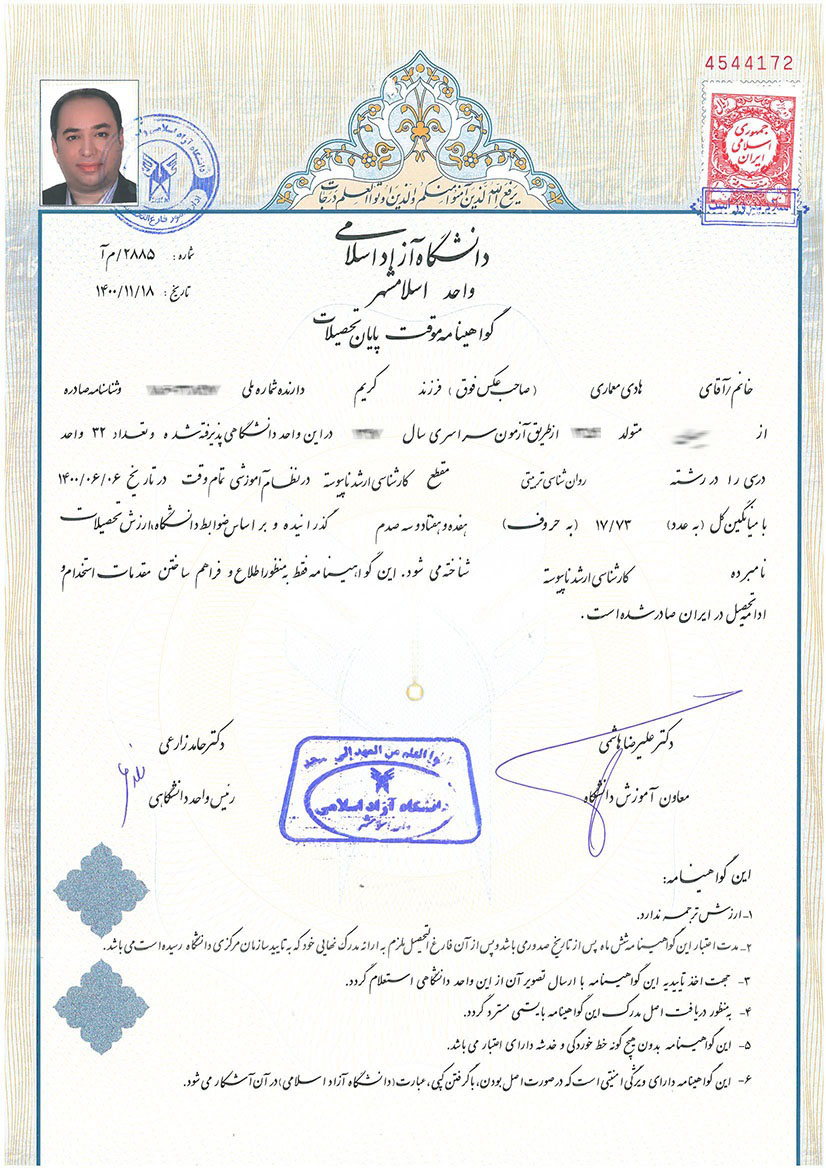 4544172
جمهوری
اسلامی
ایران
یرفع الله الذین آمنوا منکم والذین اوتوا العلم درجات
دانشگاه آزاد اسلامی
واحد اسلامشهر
گواهینامه موقت پایان تحصیلات
شماره: ۲۸۸۵/م آ
تاریخ: ۱۴۰۰/۱۱/۱۸
خانم/آقای هادی معماری (صاحب عکس فوق) فرزند کریم دارنده شماره ملی وشناسنامه صادره
از متولد ازطریق آزمون سراسری سال در این واحد دانشگاهی پذیرفته شده و تعداد ۳۲ واحد
درسی را در رشته روان شناسی تربیتی مقطع کارشناسی ارشد ناپیوسته در نظام آموزشی تمام وقت در تاریخ ۱۴۰۰/۰۶/۰۶
با میانگین کل (به عدد) ۱۷/۷۳ (به حروف) هفده و هفتاد و سه صدم گذرانیده و بر اساس ضوابط دانشگاه، ارزش تحصیلات
نامبرده کارشناسی ارشد ناپیوسته شناخته می شود. این گواهینامه فقط به منظور اطلاع و فراهم ساختن مقدمات استخدام و
ادامه تحصیل در ایران صادر شده است.
دکتر علیرضا هاشمی
معاون آموزش دانشگاه
دکتر حامد زارعی
رئیس واحد دانشگاهی
دانشگاه آزاد اسلامی
واحد اسلامشهر
این گواهینامه:
۱- ارزش ترجمه ندارد.
۲- مدت اعتبار این گواهینامه شش ماه پس از تاریخ صدور می باشد و پس از آن فارغ التحصیل ملزم به ارائه مدرک نهایی خود که به تایید سازمان مرکزی دانشگاه رسیده است می باشد.
۳- جهت اخذ تأییدیه این گواهینامه با ارسال تصویر آن از این واحد دانشگاهی استعلام گردد.
۴- به منظور دریافت اصل مدرک این گواهینامه بایستی مسترد گردد.
۵- این گواهینامه بدون هیچ گونه خط خوردگی و خدشه دارای اعتبار می باشد.
۶- این گواهینامه دارای ویژگی امنیتی است که در صورت اصل بودن، با گرفتن کپی، عبارت (دانشگاه آزاد اسلامی) در آن آشکار می شود.